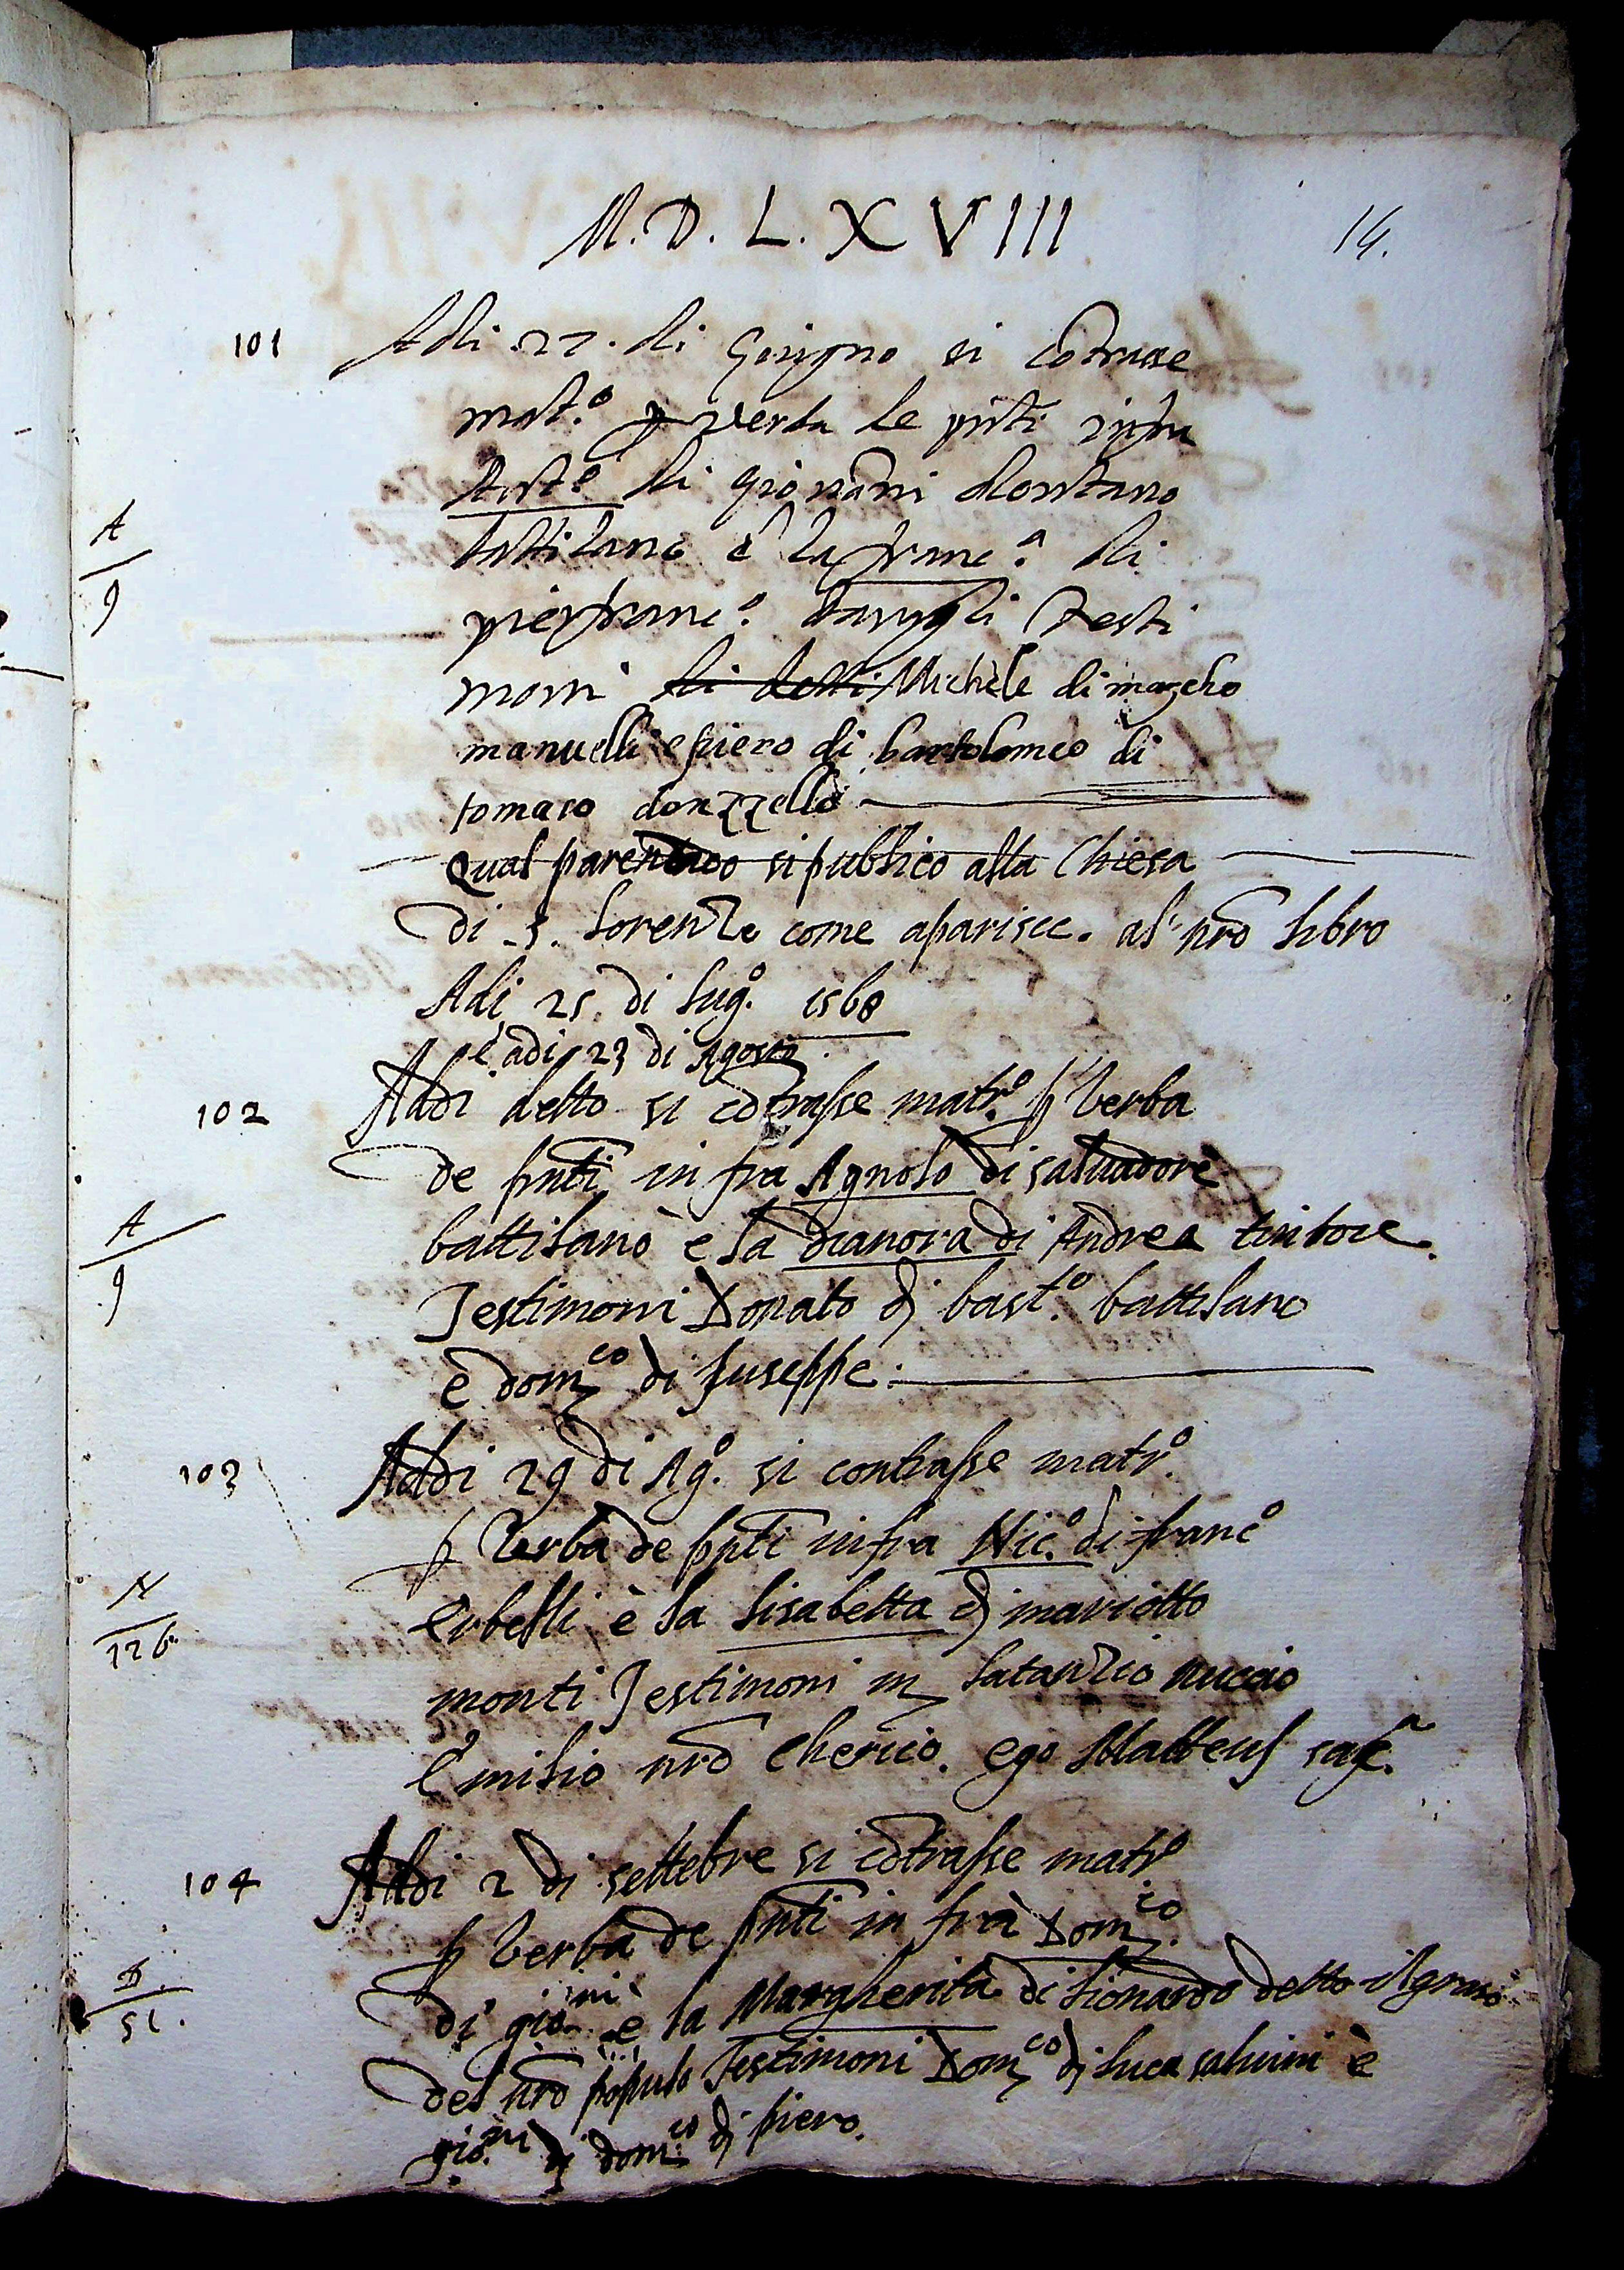 M.D.L.XVIII
14.
101
Adi .27. di Giugno si cōtrasse
mat.º p verba le pñti infra
Ant.º di giovāni Montano
A
9
battilano è la franc.ª di
pierfranc.º Testi
moni di detti Michele di marcho
manuelli e piero di bartolomeo di
tomaso donzzello
Qual parentado si publico alla Chiesa
di .S. Lorenzo come aparisce. al nr̄o libro
Adi 25. di lug.º 1568
è adi 23 di Agosto
102
Addi detto si cōtrasse matr.º p Verba
de pñti in fra Agnolo di salvadore
A
9
battilano è la dianora di Andrea tintore.
Testimoni Donato di bast.º battilano
è dom.co di Juseppe.
103
Addi 29 di Ag.º si contrasse matr.º
p Verba de pñti infra Nic.º di franc.º
N
126.
Erbelli è la lisabetta di mariotto
monti Testimoni m latanzio nuccio
Emilio nr̄o cherico. ego Matteus
104
Addi 2 di settēbre si cōtrasse matr.º
p Verba de pñti in frà Dom.co
D.
51.
di gio.ni è la Margherita di lionardo detto il grasso
del nr̄o populo Testimoni Dom.co di luca salvini è
gio.ni di dom.co di piero.